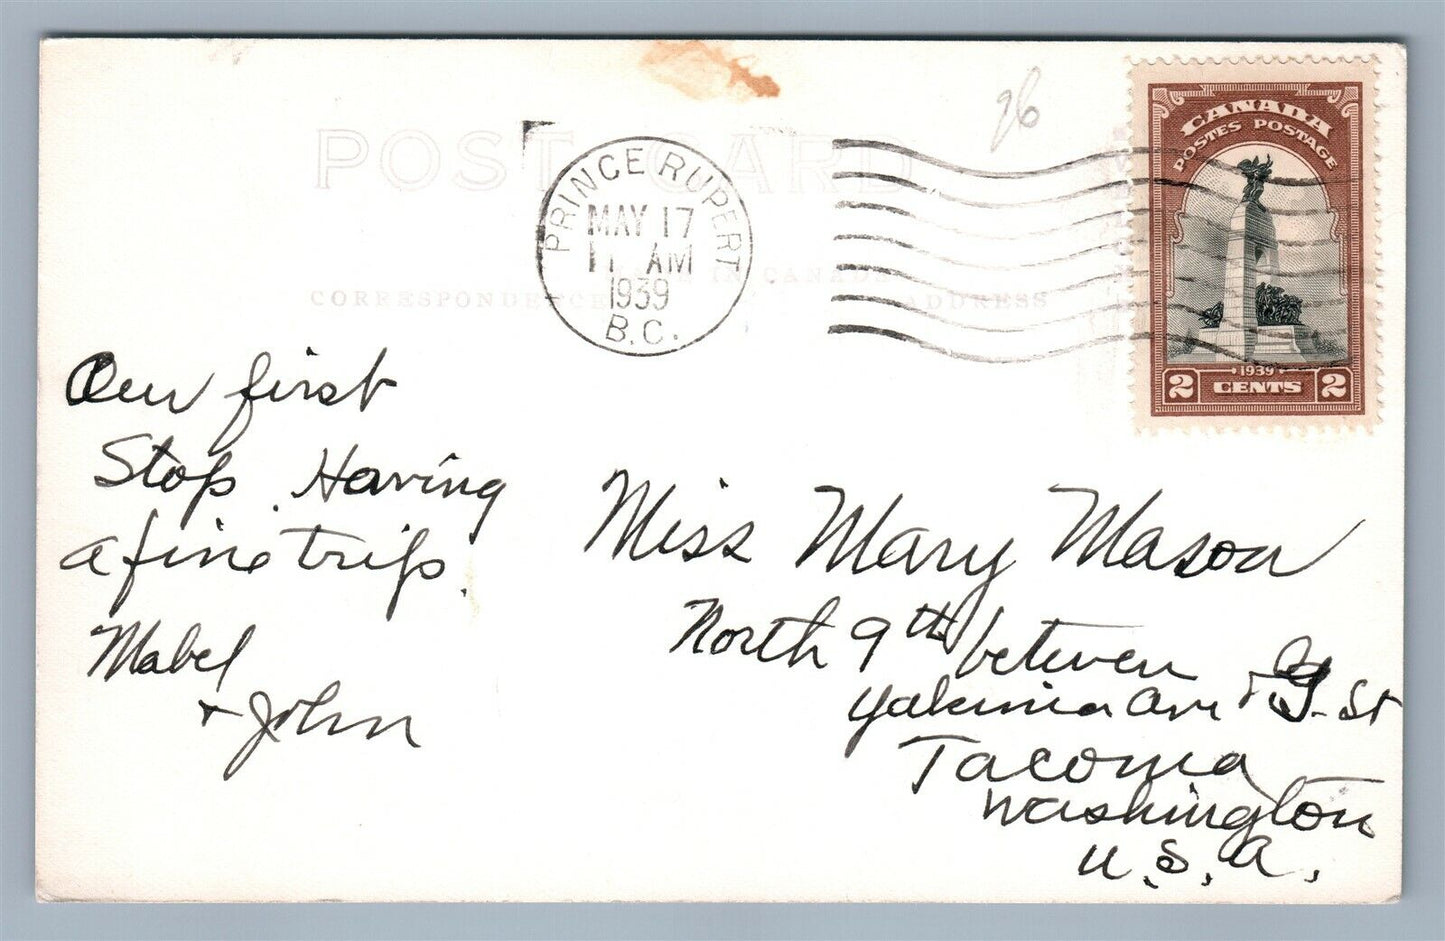 POST CARD
MADE IN CANADA
CORRESPONDENCE ADDRESS
PRINCE RUPERT
MAY 17
11 AM
1939
B.C.
26
CANADA
POSTES POSTAGE
1939
2 CENTS 2
Our first
Stop. Having
a fine trip.
Mabel
+ John
Miss Mary Mason
North 9th between
Yakima Ave + G. St
Tacoma
Washington
U.S.A.